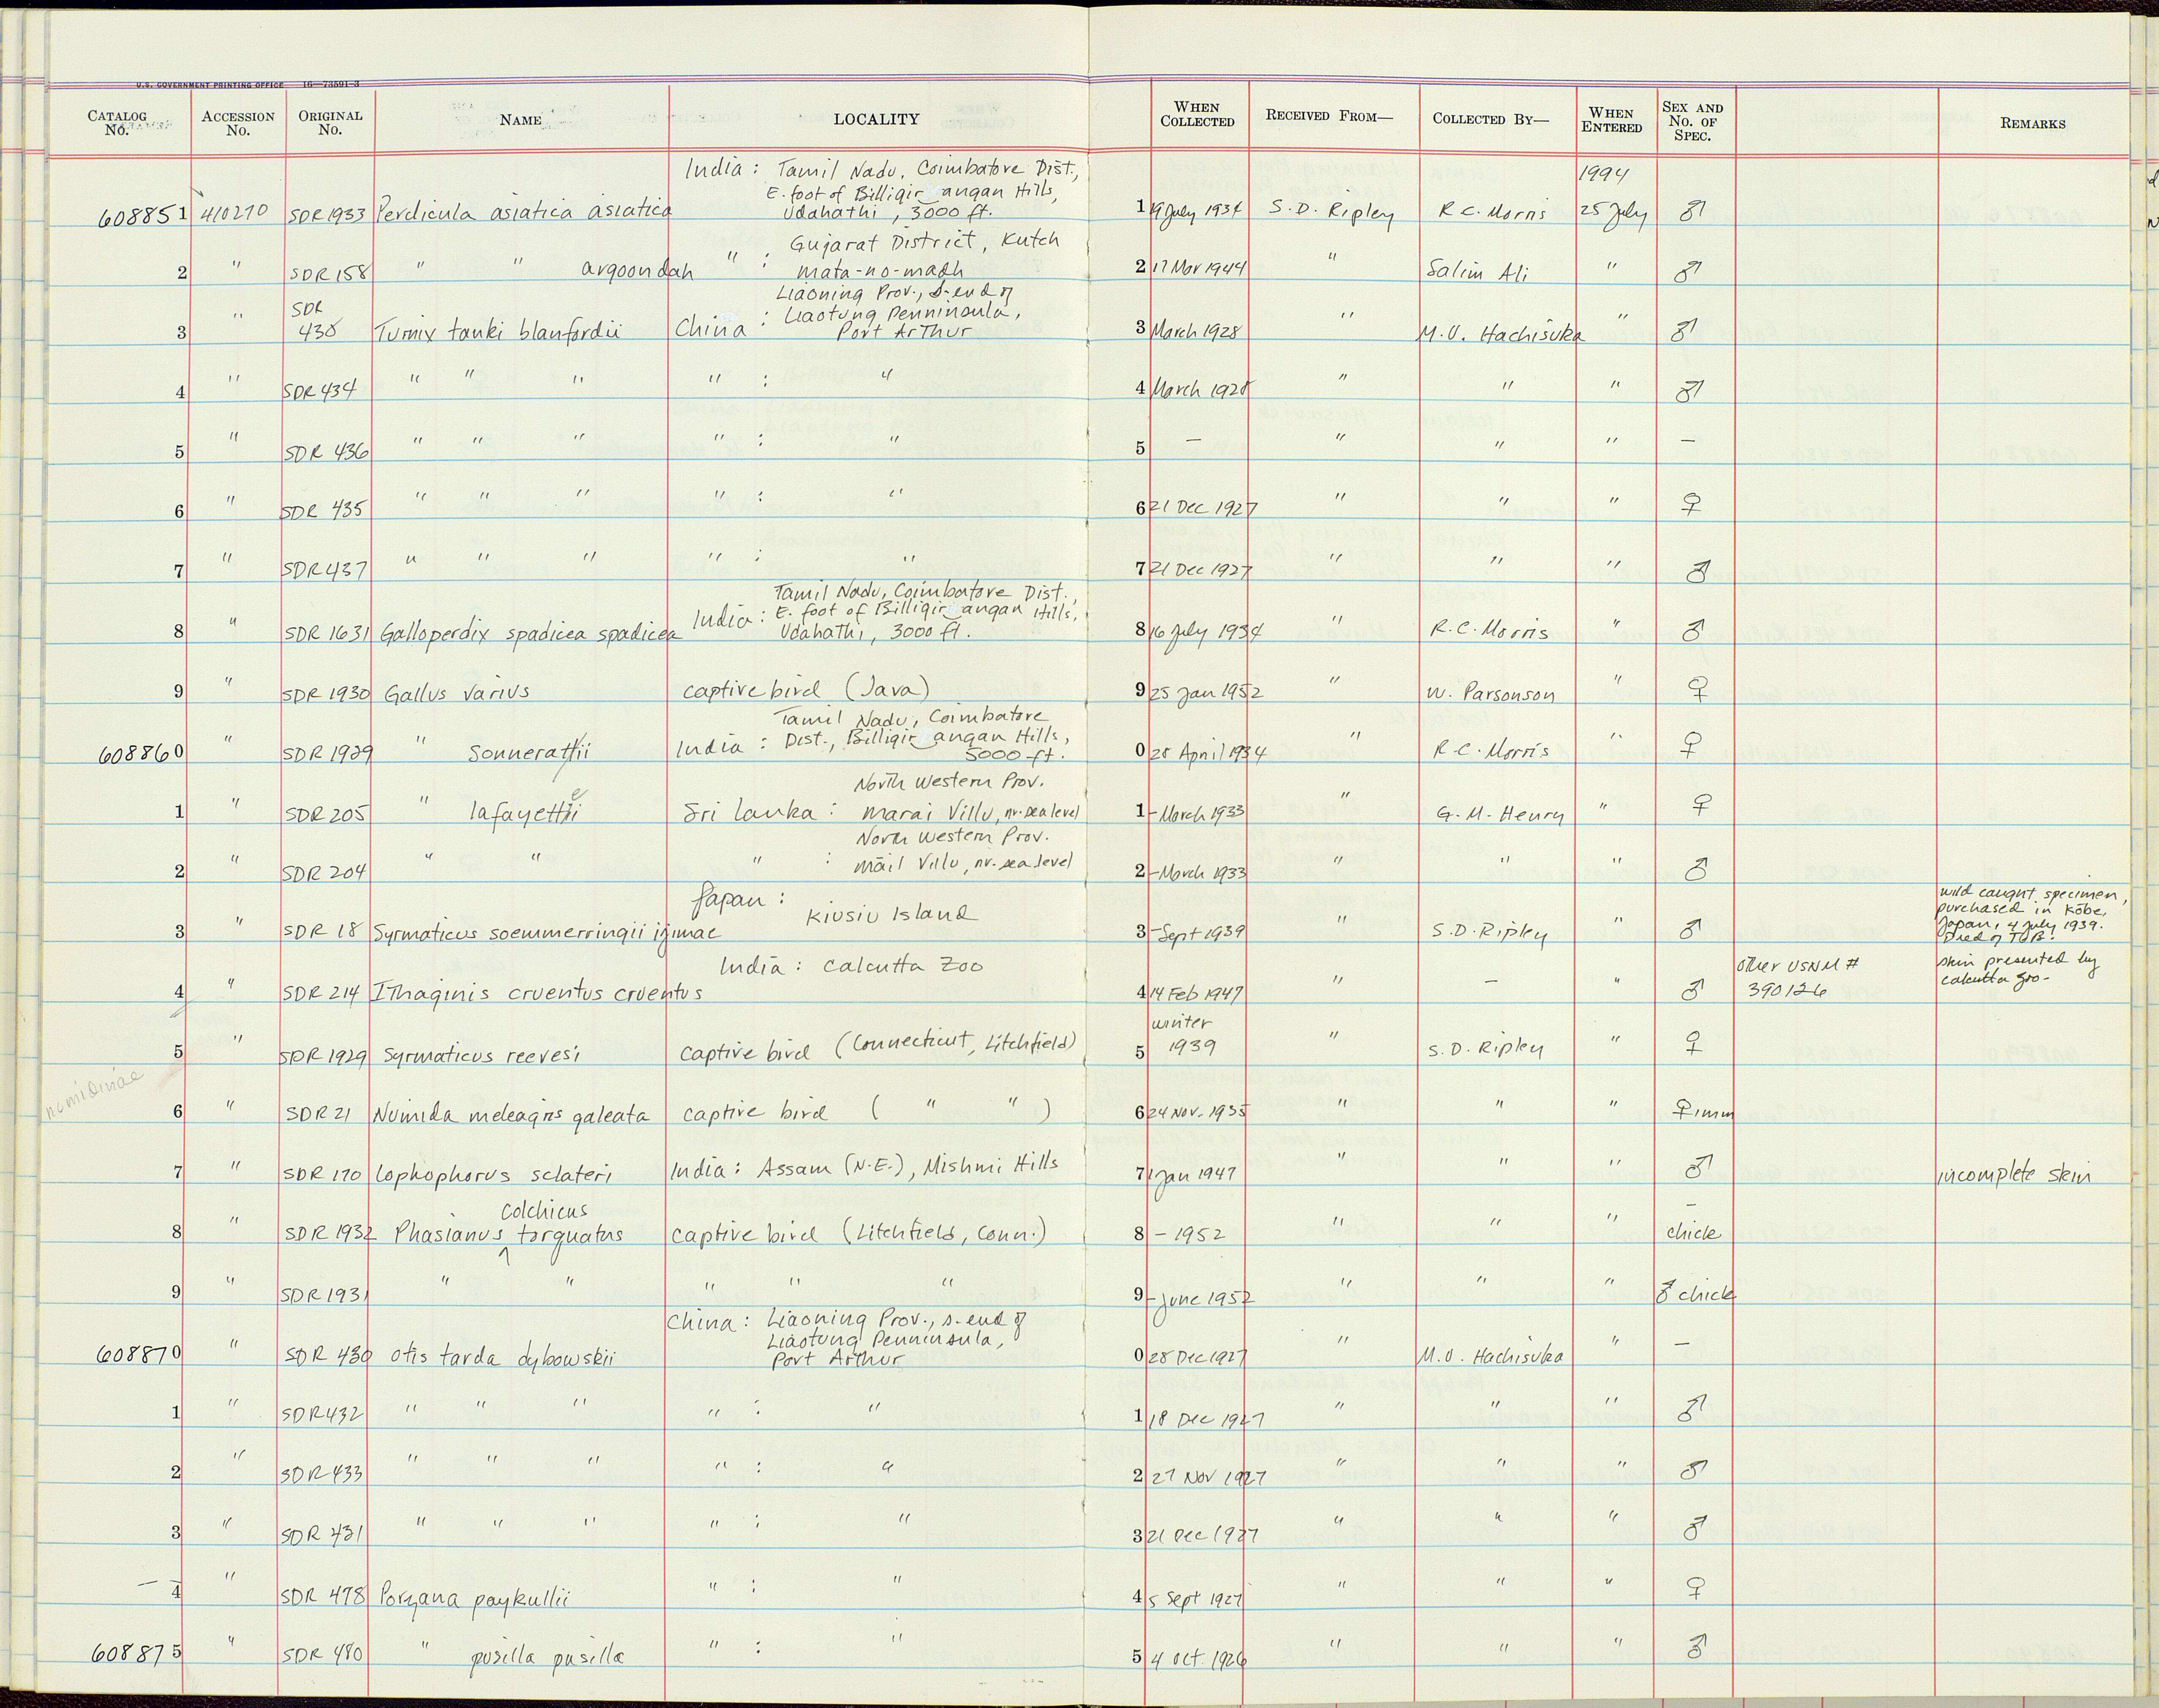 U.S. GOVERNMENT PRINTING OFFICE 16—73591-3
CATALOG No. ACCESSION No. ORIGINAL No. NAME LOCALITY WHEN COLLECTED RECEIVED FROM— COLLECTED BY— WHEN ENTERED SEX AND No. OF SPEC. REMARKS
India: Tamil Nadu, Coimbatore Dist., 1994
E. foot of Billigir angan Hills,
608851 410270 SDR1933 Perdicula asiatica asiatica Udahathi, 3000 ft. 1 19 July 1934 S.D. Ripley R.C. Morris 25 July ♂
Gujarat District, Kutch
2 " SDR158 " " argoondah " : mata-no-madh 2 17 Mar 1944 " Salim Ali " ♂
Liaoning Prov., S. end of
SDR Liaotung Penninsula,
3 " 438 Turnix tanki blanfordii China : Port Arthur 3 March 1928 " M.U. Hachisuka " ♂
4 " SDR 434 " " " " : " 4 March 1928 " " " ♂
5 " SDR 436 " " " " : " 5 — " " " —
6 " SDR 435 " " " " : " 6 21 Dec 1927 " " " ♀
7 " SDR 437 " " " " : " 7 21 Dec 1927 " " " ♂
Tamil Nadu, Coimbatore Dist.,
India: E. foot of Billigir angan Hills,
8 " SDR 1631 Galloperdix spadicea spadicea Udahathi, 3000 ft. 8 16 July 1934 " R.C. Morris " ♂
9 " SDR 1930 Gallus varius captive bird (Java) 9 25 Jan 1952 " W. Parsonson " ♀
Tamil Nadu, Coimbatore
608860 " SDR 1929 " sonnerattii India : Dist., Billigir angan Hills, 0 28 April 1934 " R.C. Morris " ♀
5000 ft.
North Western Prov.
1 " SDR 205 " lafayettii e Sri Lanka : Marai Villu, nr. sea level 1 - March 1933 " G.M. Henry " ♀
North Western Prov.
2 " SDR 204 " " " : māil Villu, nr. sea level 2 - March 1933 " " " ♂
Japan : wild caught specimen,
Kiusiu Island purchased in Kōbe,
3 " SDR 18 Syrmaticus soemmerringii ijimae 3 - Sept 1939 " S.D. Ripley " ♂ Japan, 4 July 1939.
Died of TUB.
India: Calcutta Zoo other USNM # skin presented by
4 " SDR 214 Ithaginis cruentus cruentus 4 14 Feb 1947 " — " ♂ 390126 calcutta zoo-
winter
5 " SDR 1929 Syrmaticus reevesi captive bird (Connecticut, Litchfield) 5 1939 " S.D. Ripley " ♀
6 " SDR 21 Numida meleagris galeata captive bird ( " " ) 6 24 Nov. 1935 " " " ♀ imm
7 " SDR 170 Lophophorus sclateri India: Assam (N.E.), Mishmi Hills 7 1 Jan 1947 " " " ♂ incomplete skin
colchicus —
8 " SDR 1932 Phasianus ^ torquatus captive bird (Litchfield, Conn.) 8 - 1952 " " " chick
9 " SDR 1931 " " " " " 9 - June 1952 " " " ♂ chick
China: Liaoning Prov., s. end of
Liaotung Penninsula,
608870 " SDR 430 Otis tarda dybowskii Port Arthur 0 28 Dec 1927 " M.U. Hachisuka " —
1 " SDR 432 " " " " : " 1 18 Dec 1927 " " " ♂
2 " SDR 433 " " " " : " 2 27 Nov 1927 " " " ♂
3 " SDR 431 " " " " : " 3 21 Dec 1927 " " " ♂
4 " SDR 478 Porzana paykullii " : " 4 5 Sept 1927 " " " ♀
608875 " SDR 480 " pusilla pusilla " : " 5 4 Oct. 1926 " " " ♂